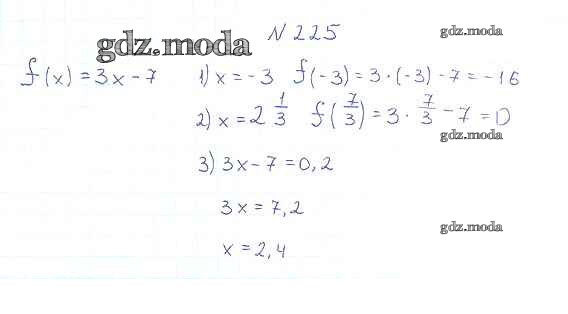 N 225
gdz.moda
gdz.moda
f(x) = 3x - 7 1) x = -3 f(-3) = 3 · (-3) - 7 = -16
2) x = 2 1/3 f(7/3) = 3 · 7/3 - 7 = 0
gdz.moda
3) 3x - 7 = 0,2
3x = 7,2
gdz.moda
x = 2,4